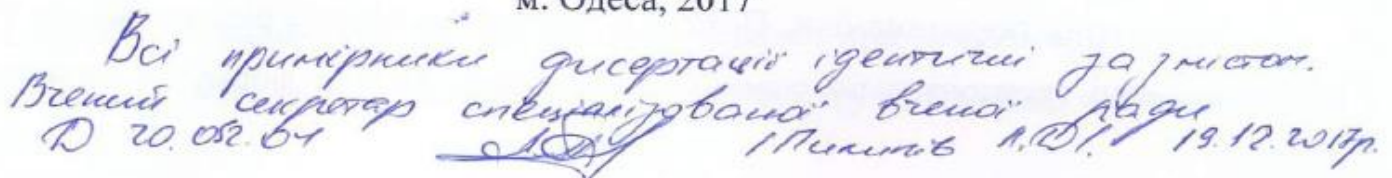 м. Одеса, 2017
Всі примірники дисертації ідентичні за змістом.
Вчений секретар спеціалізованої вченої ради
Д 20.052.04 19.12.2017р.